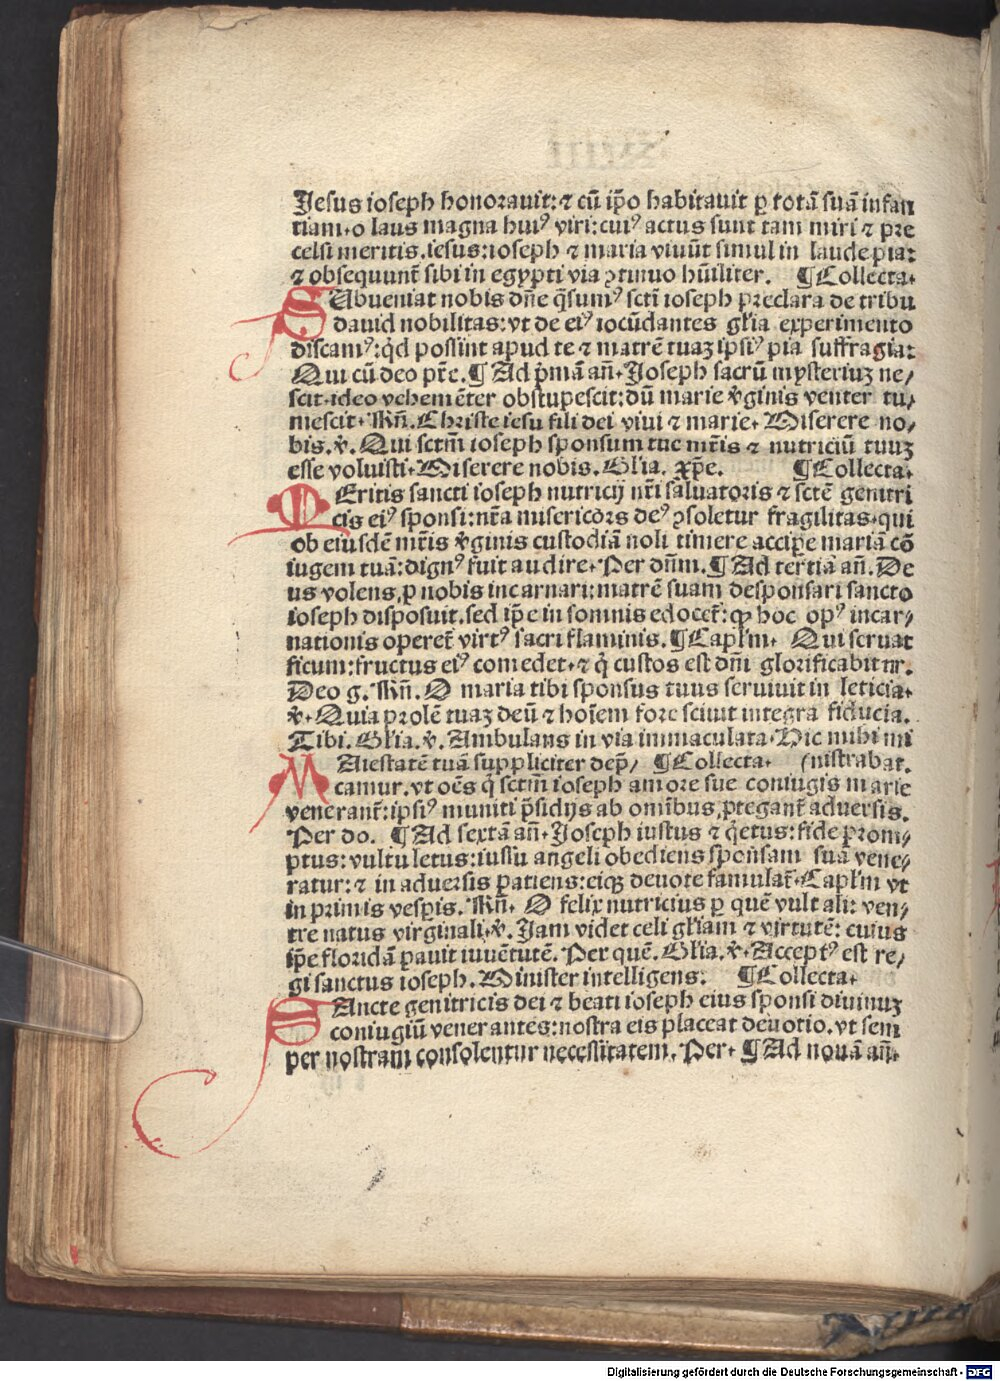 Jesus ioseph honorauit: ⁊ cū ip̄o habitauit ꝑ totā suā infan
tiam. o laus magna huiꝰ viri: cuiꝰ actus sunt tam miri ⁊ pre
celsi meritis. iesus: ioseph ⁊ maria viuūt simul in laude pia:
⁊ obsequunt̄ sibi in egypti via ꝯtinuo hūiliter. ¶ Collecta.
SAbueniat nobis dn̄e q̄sumꝰ scti ioseph p̄reclara de tribu
dauid nobilitas: vt de eiꝰ iocūdantes gl̄ia experimento
discamꝰ: q̇d possint apud te ⁊ matrē tuaꝫ ipsiꝰ pia suffragia:
Qui cū deo pr̄e. ¶ Ad p̄mā an̄. Joseph sacrū mysteriuꝫ ne/
scit. ideo vehemēter obstupescit: dū marie v̄ginis venter tu/
mescit. Rn̄. Christe iesu fili dei viui ⁊ marie. Miserere no/
bis. v̄. Qui sctm̄ ioseph sponsum tue mr̄is ⁊ nutriciū tuuꝫ
esse voluisti. Miserere nobis. Gl̄ia. xp̄e. ¶ Collecta.
MEritis sancti ioseph nutricij nr̄i saluatoris ⁊ sctē genitri
cis eiꝰ sponsi: nr̄a misericōrs deꝰ ꝯsoletur fragilitas. qui
ob eiusdē mr̄is v̄ginis custodiā noli timere accipe mariā cō
iugem tuā: dignꝰ fuit audire. Per dn̄m. ¶ Ad tertiā an̄. De
us volens, ꝓ nobis incarnari: matrē suam desponsari sancto
ioseph disposuit. sed ip̄e in somnis edocet̄: ꝙ hoc opꝰ incar/
nationis operet̄ virtꝰ sacri flaminis. ¶ Capl'm. Qui seruat
ficum: fructus eiꝰ comedet. ⁊ q̇ custos est dn̄i glorificabitur.
Deo g. Rn̄. O maria tibi sponsus tuus seruiuit in leticia.
v̄. Quia prolē tuaꝫ deū ⁊ hoīem fore sciuit integra fiducia.
Tibi. Gl̄ia. v̄. Ambulans in via immaculata. Hic mihi mi
MAiestatē tuā suppliciter dep̄/ ¶ Collecta. (nistrabat.
camur. vt oēs q̇ sctm̄ ioseph amore sue coniugis marie
venerant̄: ipsiꝰ muniti p̄sidijs ab omībus, ꝓtegant̄ aduersis.
Per do. ¶ Ad sextā an̄. Joseph iustus ⁊ q̇etus: fide prom/
ptus: vultu letus: iussu angeli obediens sponsam suā vene/
ratur: ⁊ in aduersis patiens: eiqꝫ deuote famulat̄. Capl'm vt
in primis vesꝑis. Rn̄. O felix nutricius ꝑ quē vult ali: ven/
tre natus virginali. v̄. Jam videt celi gl̄iam ⁊ virtutē: cuius
ip̄e floridā pauit iuuētutē. Per quē. Gl̄ia. v̄. Acceptꝰ est re/
gi sanctus ioseph. Minister intelligens. ¶ Collecta.
SAncte genitricis dei ⁊ beati ioseph eius sponsi diuinuꝫ
coniugiū venerantes: nostra eis placeat deuotio. vt sem
per nostram consolentur necessitatem. Per. ¶ Ad nonā an̄.
Digitalisierung gefördert durch die Deutsche Forschungsgemeinschaft - DFG